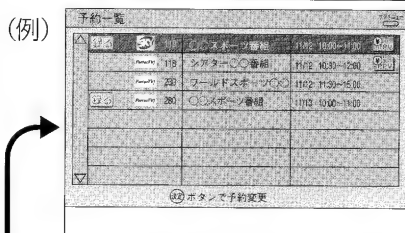 (例)
予約一覧
○○スポーツ番組 11/12 10:00~11:00
118 シアター○○番組 11/12 10:30~12:00
230 ワールドスポーツ○○ 11/12 11:30~15:00
280 ○○スポーツ番組 11/13 10:00~11:00
決定 ボタンで予約変更